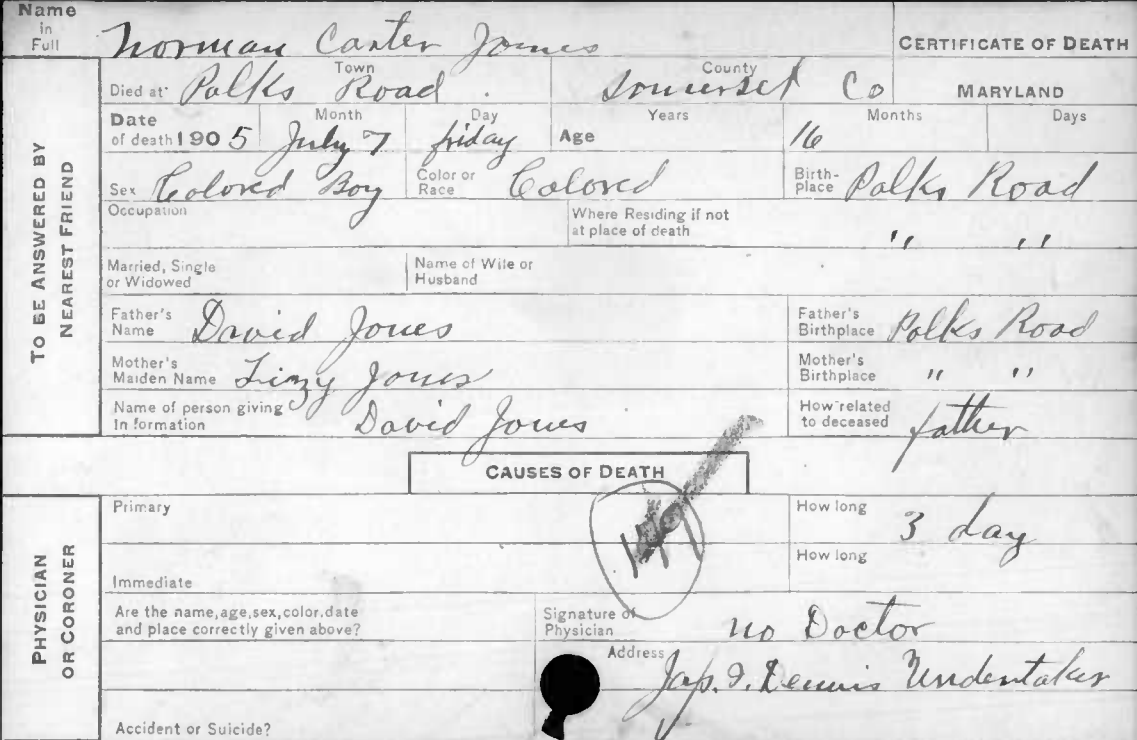 Name in Full Norman Carter Jones
CERTIFICATE OF DEATH
TO BE ANSWERED BY NEAREST FRIEND
Died at Polks Road Town Somerset Co County MARYLAND
Date of death 1905 Month July 7 Day friday Age Years 16 Months Days
Sex Colored Boy Color or Race Colored Birth-place Polks Road
Occupation Where Residing if not at place of death " "
Married, Single or Widowed Name of Wife or Husband
Father's Name David Jones Father's Birthplace Polks Road
Mother's Maiden Name Lizzy Jones Mother's Birthplace " "
Name of person giving Information David Jones How related to deceased father
CAUSES OF DEATH
PHYSICIAN OR CORONER
Primary How long 3 day
Immediate How long
Are the name, age, sex, color, date and place correctly given above? Signature of Physician no Doctor
Address Dennis Undentaker
Accident or Suicide?